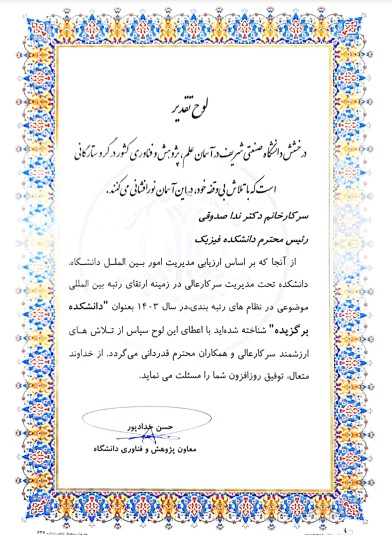 لوح تقدیر
درخشش دانشگاه صنعتی شریف در آسمان علم، پژوهش و فناوری کشور در گرو ستارگانی
است که با تلاش بی‌وقفه خود، در این آسمان نورافشانی می‌کنند.
سرکارخانم دکتر ندا صدوقی
رئیس محترم دانشکده فیزیک
از آنجا که بر اساس ارزیابی مدیریت امور بین الملل دانشگاه،
دانشکده تحت مدیریت سرکارعالی در زمینه ارتقای رتبه بین المللی
موضوعی در نظام های رتبه بندی،در سال ۱۴۰۳ بعنوان "دانشکده
برگزیده" شناخته شده‌اید با اعطای این لوح سپاس از تلاش های
ارزشمند سرکارعالی و همکاران محترم قدردانی می‌گردد. از خداوند
متعال، توفیق روزافزون شما را مسئلت می نماید.
حسن حدادپور
معاون پژوهش و فناوری دانشگاه